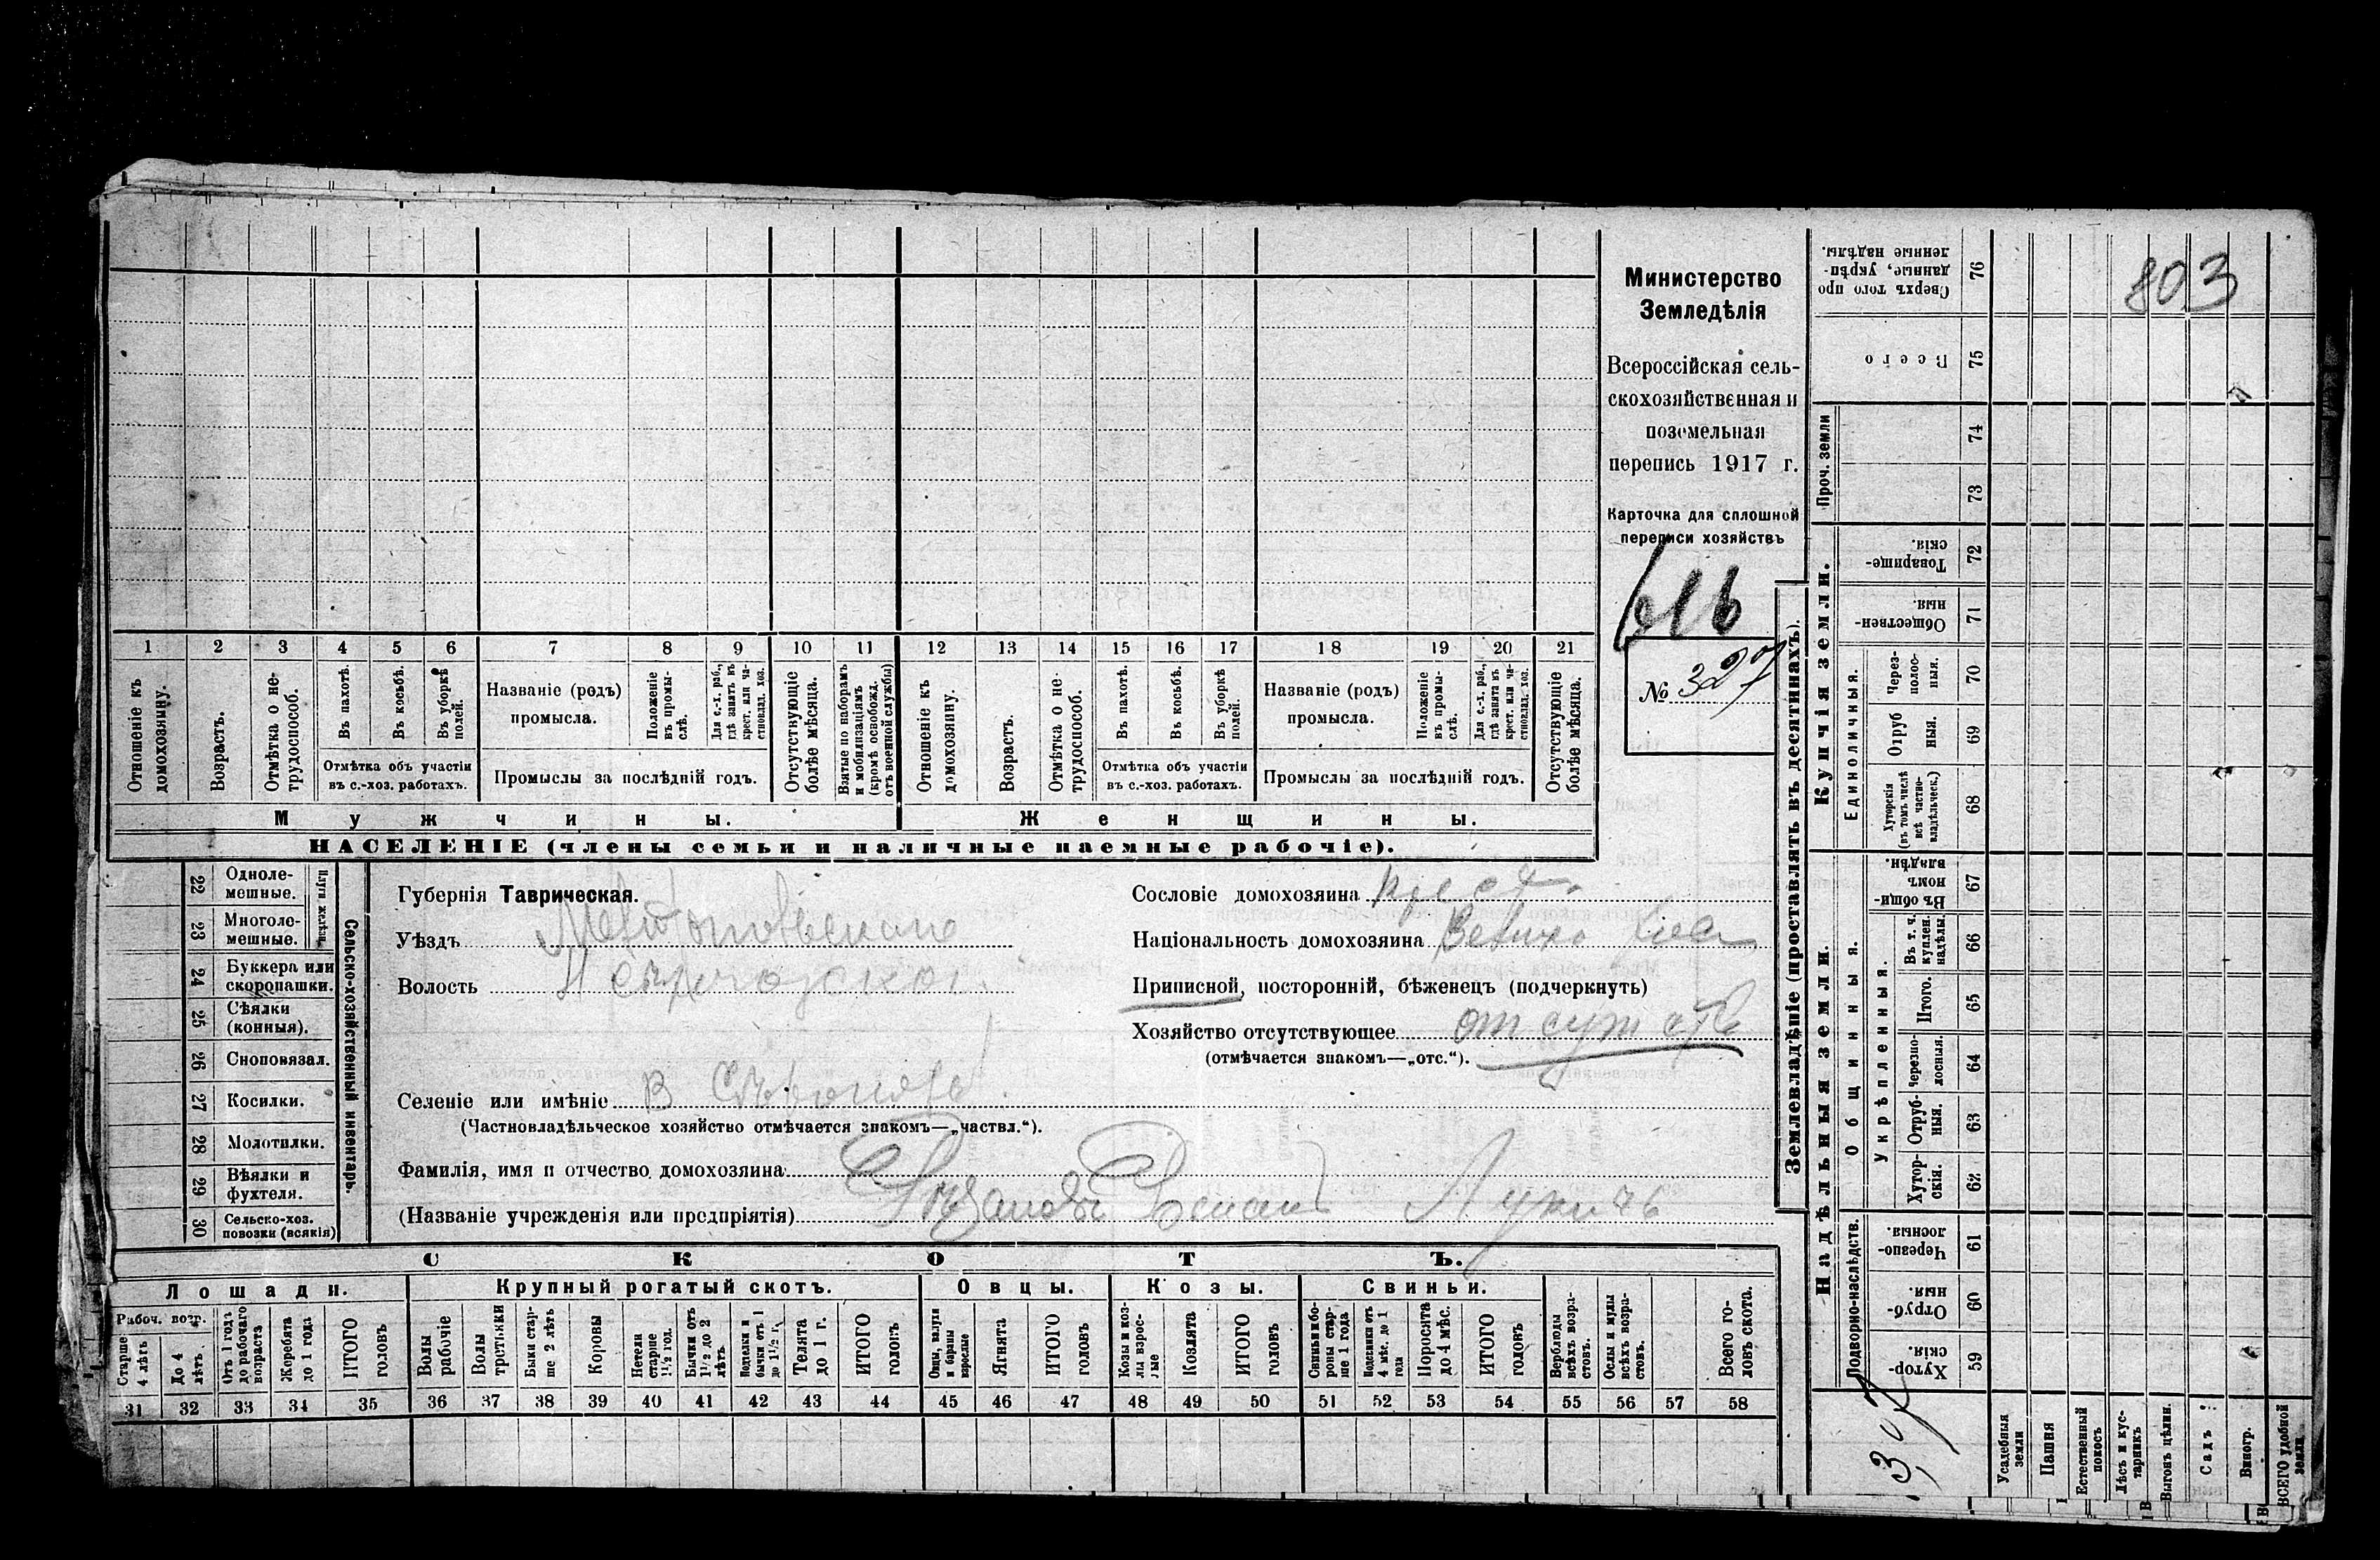 803
Министерство
Земледѣлія
Всероссійская сель-
скохозяйственная и
поземельная
перепись 1917 г.
Карточка для сплошной
переписи хозяйствъ
№ 327
1 2 3 4 5 6 7 8 9 10 11 12 13 14 15 16 17 18 19 20 21
Отношеніе къ домохозяину.
Возрастъ.
Отмѣтка о не-трудоспособ.
Въ пахотѣ.
Въ косьбѣ.
Въ уборкѣ полей.
Отмѣтка объ участіи
въ с.-хоз. работахъ.
Названіе (родъ)
промысла.
Положеніе въ промы-слѣ.
Для с.-х. раб., гдѣ занятъ въ крест. или ча-стновлад. хоз.
Промыслы за послѣдній годъ.
Отсутствующіе болѣе мѣсяца.
Взятые по наборамъ и мобилизаціямъ (кромѣ освобожд. отъ военной службы)
Отношеніе къ домохозяину.
Возрастъ.
Отмѣтка о не-трудоспособ.
Въ пахотѣ.
Въ косьбѣ.
Въ уборкѣ полей.
Отмѣтка объ участіи
въ с.-хоз. работахъ.
Названіе (родъ)
промысла.
Положеніе въ промы-слѣ.
Для с.-х. раб., гдѣ занята въ крест. или ча-стновлад. хоз.
Промыслы за послѣдній годъ.
Отсутствующіе болѣе мѣсяца.
Мужчины.
Женщины.
НАСЕЛЕНІЕ (члены семьи и наличные наемные рабочіе).
22 Одноле-мешные.
23 Многоле-мешные.
24 Буккера или скоропашки.
25 Сѣялки (конныя).
26 Сноповязал.
27 Косилки.
28 Молотилки.
29 Вѣялки и фухтеля.
30 Сельско-хоз. повозки (всякія)
Сельско-хозяйственный инвентарь.
Губернія Таврическая.
Уѣздъ
Волость
Селеніе или имѣніе
(Частновладѣльческое хозяйство отмѣчается знакомъ—„частвл.“).
Фамилія, имя и отчество домохозяина
(Названіе учрежденія или предпріятія) Лукичъ
Сословіе домохозяина крест.
Національность домохозяина
Приписной, посторонній, бѣженецъ (подчеркнуть)
Хозяйство отсутствующее
(отмѣчается знакомъ—„отс.“).
СКОТЪ.
Лошади.
Крупный рогатый скотъ.
Овцы.
Козы.
Свиньи.
Рабоч. возр.
Старше 4 лѣтъ
До 4 лѣтъ
Отъ 1 года до рабочаго возраста
Жеребята до 1 года
ИТОГО головъ
Волы рабочіе
Волы третьяки
Быки стар-ше 2 лѣтъ
Коровы
Нетели старше 1 1/2 год.
Бычки отъ 1 1/2 до 2 лѣтъ
Подтелки и бычки отъ 1 до 1 1/2 г.
Телята до 1 г.
ИТОГО головъ
Овцы, валухи и бараны взрослые
Ягнята
ИТОГО головъ
Козы и коз-лы взрос-лые
Козлята
ИТОГО головъ
Свиньи и бо-ровы стар-ше 1 года
Подсвинки отъ 4 мѣс. до 1 года
Поросята до 4 мѣс.
ИТОГО головъ
Верблюды всѣхъ возра-стовъ.
Ослы и мулы всѣхъ возра-стовъ.
Всего го-ловъ скота.
31 32 33 34 35 36 37 38 39 40 41 42 43 44 45 46 47 48 49 50 51 52 53 54 55 56 57 58
Землевладѣніе (проставлять въ десятинахъ).
Купчія земли.
Надѣльныя земли.
Сверхъ того про данные, укрѣп-ленные надѣлы. 76
Всего 75
Проч. земли
74
73
Товарище-скія. 72
Обществен-ныя. 71
Единоличныя.
Через-полос-ныя. 70
Отруб ныя. 69
Хуторскія (въ томъ числѣ всѣ частно-владѣльческ.) 68
Общинныя.
Въ общи-номъ владѣн. 67
Укрѣпленныя.
Въ т. ч. куплен. надѣлы. 66
Итого. 65
Черезпо-лосныя. 64
Отруб-ныя. 63
Хутор-скія. 62
Подворно-наслѣдств.
Черезпо-лосныя 61
Отруб-ныя. 60
Хутор-скія. 59
Усадебныя земли
Пашня
Естественный покосъ
Лѣсъ и кус-тарникъ
Выгонъ цѣлин.
Садъ
Виногр.
ВСЕГО удобной земли